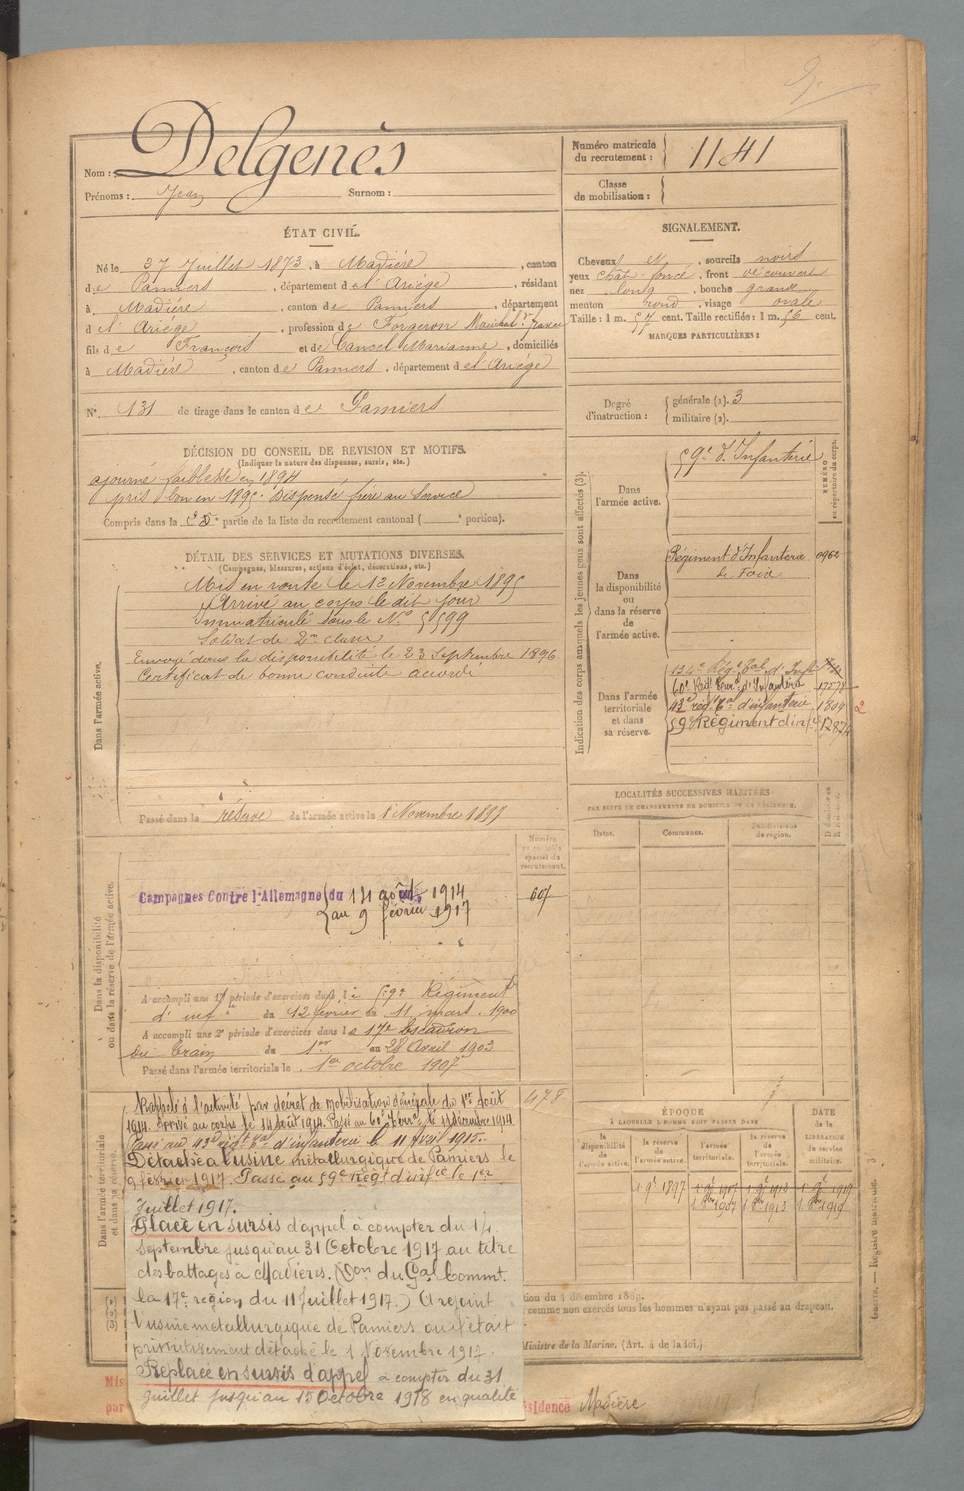 Nom : Delgenès
Prénoms : Jean Surnom :
Numéro matricule du recrutement : 1141
Classe de mobilisation :
ÉTAT CIVIL.
Né le 27 Juillet 1873, à Madière, canton
de Pamiers, département de l'Ariége, résidant
à Madière, canton de Pamiers, département
d l'Ariége, profession de Forgeron Maréchal
fils de François et de Cancel Marianne, domiciliés
à Madière, canton de Pamiers, département de l'Ariége
N° 131 de tirage dans le canton de Pamiers
SIGNALEMENT.
Cheveux et, sourcils noirs
yeux chât. foncé, front découvert
nez long, bouche grande
menton rond, visage ovale
Taille : 1 m. 54 cent. Taille rectifiée : 1 m. 56 cent.
MARQUES PARTICULIÈRES :
Degré d'instruction : générale (1). 3
militaire (2).
DÉCISION DU CONSEIL DE REVISION ET MOTIFS.
(Indiquer la nature des dispenses, sursis, etc.)
ajourné faiblesse en 1894
pris bon en 1895. Dispensé frère au Service
Compris dans la partie de la liste du recrutement cantonal ( portion).
DÉTAIL DES SERVICES ET MUTATIONS DIVERSES.
(Campagnes, blessures, actions d'éclat, décorations, etc.)
Dans l'armée active.
Mis en route le 12 Novembre 1895
Arrivé au corps le dit jour
Immatriculé sous le N° 5599
Soldat de 2e classe
Envoyé dans la disponibilité le 23 Septembre 1896
Certificat de bonne conduite accordé
Passé dans la réserve de l'armée active le 1 Novembre 1897
Indication des corps auxquels les jeunes gens sont affectés (3).
NUMÉRO au répertoire du corps.
Dans l'armée active.
59e d'Infanterie
Dans la disponibilité ou dans la réserve de l'armée active.
Régiment d'Infanterie 0962
de Foix
Dans l'armée territoriale et dans sa réserve.
134e Rég. Tal d'Inf
60e Régt Terral d'Infanterie 17574
43e régt Tal d'infanterie 1804 2
59e Régiment d'infie 12874
LOCALITÉS SUCCESSIVES HABITÉES
PAR SUITE DE CHANGEMENTS DE DOMICILE OU DE RÉSIDENCE.
Dates. Communes. Subdivisions de région.
Dans la disponibilité ou dans la réserve de l'armée active.
Numéro au contrôle spécial du recrutement.
607
Campagnes Contre l'Allemagne du 14 août 1914
au 9 février 1917
A accompli une 1re période d'exercices dans le 59e Régiment
d'infie du 12 février au 11 mars 1900
A accompli une 2e période d'exercices dans le 17e Escadron
du train du 1er au 28 Avril 1903
Passé dans l'armée territoriale le 1er octobre 1907
Dans l'armée territoriale et dans sa réserve.
478
Rappelé à l'activité par décret de mobilisation générale du 1er Août
1914. Arrivé au corps le 14 août 1914. Passé au 60e Terral le 11 décembre 1914
Passé au 43e régt Tal d'infanterie le 11 Avril 1915.
Détaché à l'usine métallurgique de Pamiers le
9 février 1917. Passé au 59e Régt d'infie le 1er
Juillet 1917.
Placé en sursis d'appel à compter du 14
Septembre jusqu'au 31 Octobre 1917 au titre
des battages à Madières. (Don du Gal Commt
la 17e région du 11 Juillet 1917.) A rejoint
l'usine métallurgique de Pamiers ou il était
primitivement détaché le 1 Novembre 1917.
Replacé en sursis d'appel à compter du 31
juillet jusqu'au 15 Octobre 1918 en qualité
ÉPOQUE
À LAQUELLE L'HOMME DOIT PASSER DANS
la disponibilité de l'armée active. la réserve de l'armée active. l'armée territoriale. la réserve de l'armée territoriale. DATE de la LIBÉRATION du service militaire.
(1)
(2)
(3)
comme non exercés tous les hommes n'ayant pas passé au drapeau.
Ministre de la Marine. (Art. 4 de la loi.)
Mis
par
sidence Madière